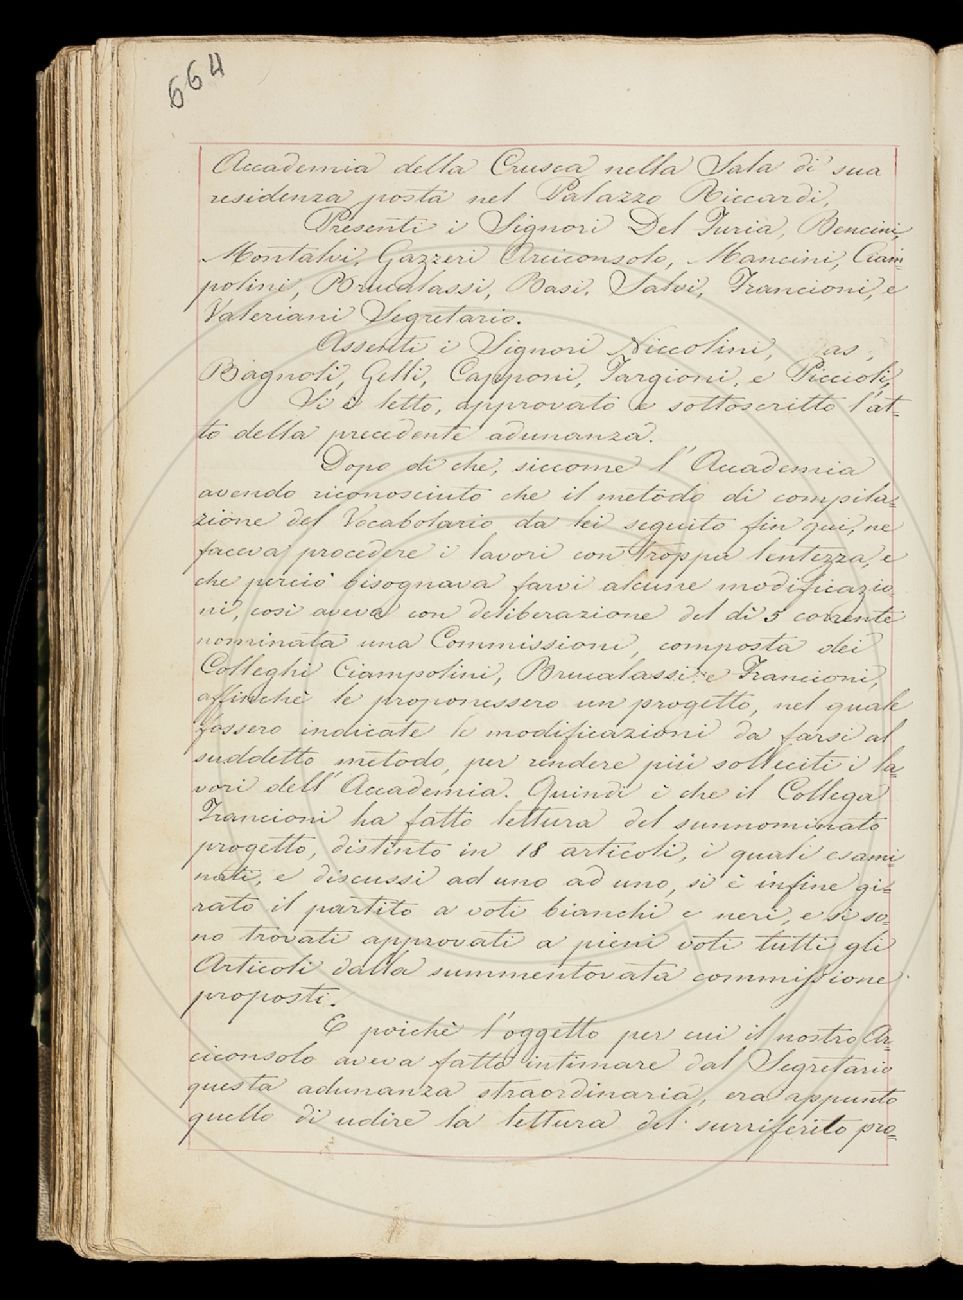 664
Accademia della Crusca nella Sala di sua
residenza posta nel Palazzo Riccardi,
Presenti i Signori Del Furia, Bencini,
Montalvi, Gazzeri Arciconsolo, Mancini, Ciam=
polini, Brucalassi, Basi, Salvi, Francioni, e
Valeriani Segretario.
Assenti i Signori Niccolini,
Bagnoli, Gelli, Capponi, Targioni, e Piccioli,
Si è letto, approvato e sottoscritto l'at=
to della precedente adunanza.
Dopo di che, siccome l'Accademia
avendo riconosciuto che il metodo di compila=
zione del Vocabolario da lei seguito fin qui, ne
faceva procedere i lavori con troppa lentezza, e
che perciò bisognava farvi alcune modificazio=
ni, così aveva con deliberazione del dì 5 corrente
nominata una Commissione, composta dei
Colleghi Ciampolini, Brucalassi e Francioni,
affinchè le proponessero un progetto, nel quale
fossero indicate le modificazioni da farsi al
suddetto metodo, per rendere più solleciti i la=
vori dell'Accademia. Quindi è che il Collega
Francioni ha fatto lettura del sunnominato
progetto, distinto in 18 articoli, i quali esami=
nati, e discussi ad uno ad uno, si è infine gi=
rato il partito a voti bianchi e neri, e si so=
no trovati approvati a pieni voti tutti gli
Articoli dalla summentovata commissione
proposti.
E poichè l'oggetto per cui il nostro Ar=
ciconsolo aveva fatto intimare dal Segretario
questa adunanza straordinaria, era appunto
quello di udire la lettura del surriferito pro=